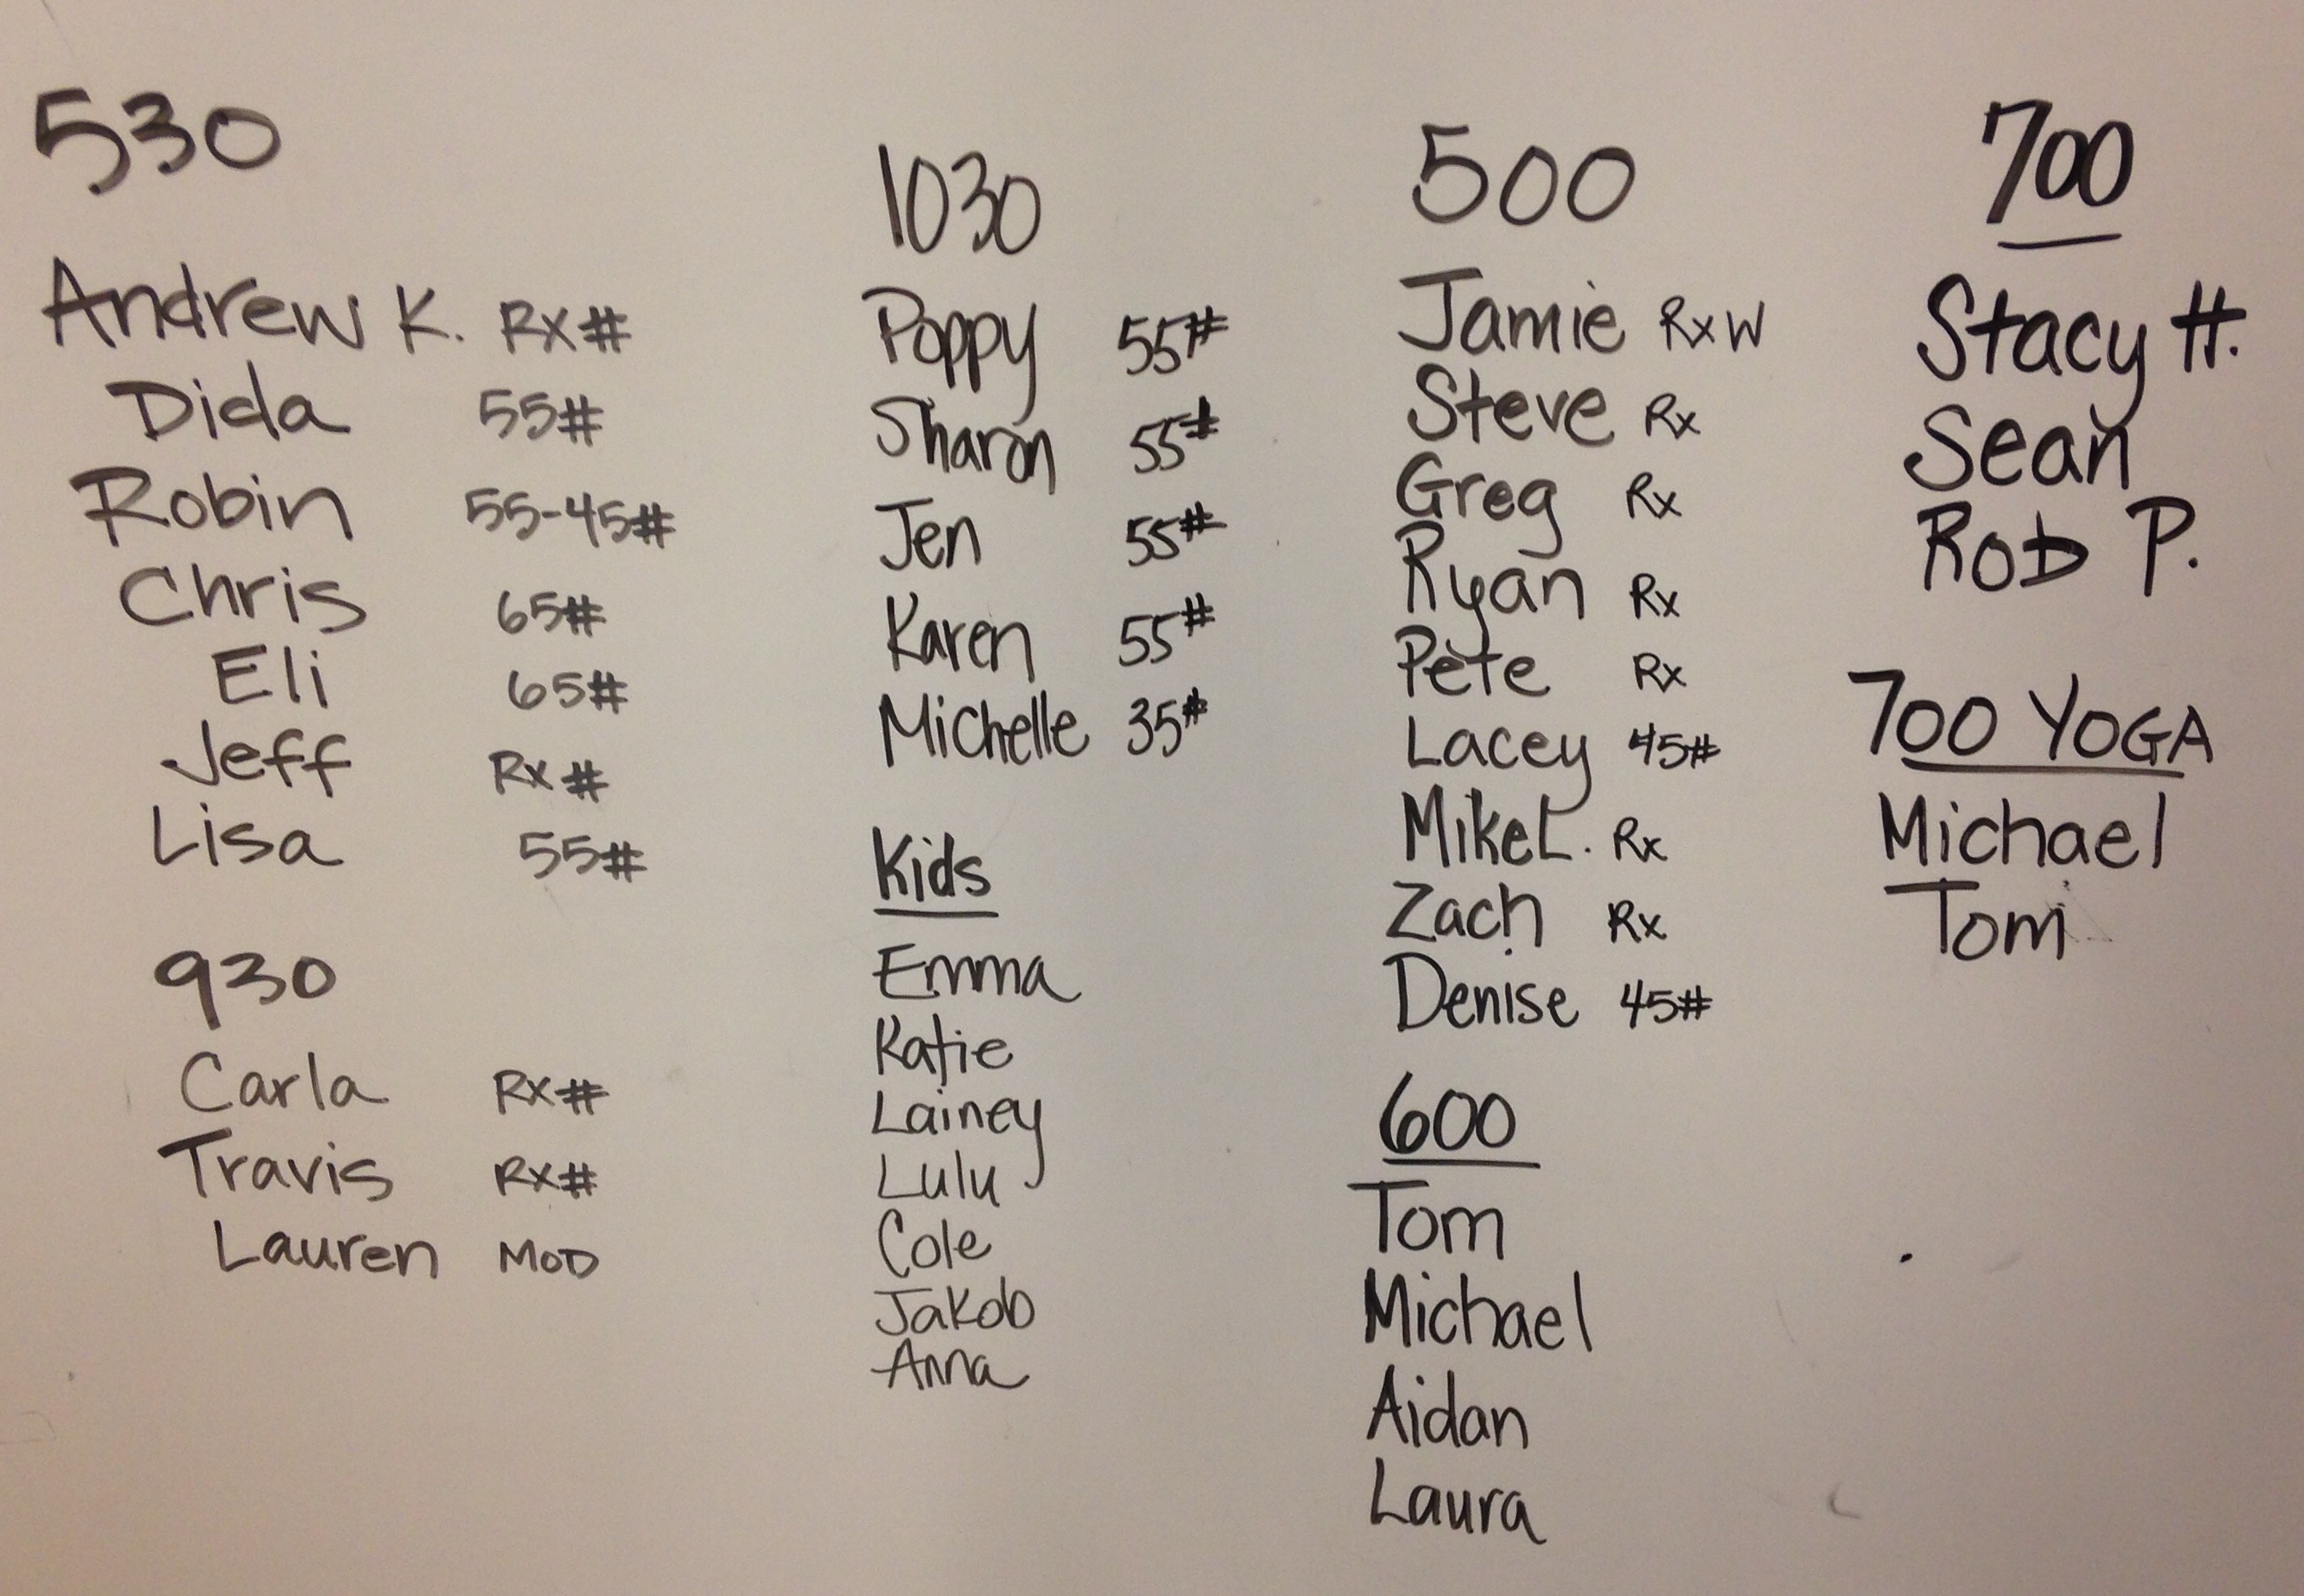 530
Andrew K. Rx#
Dida 55#
Robin 55-45#
Chris 65#
Eli 65#
Jeff Rx#
Lisa 55#
930
Carla Rx#
Travis Rx#
Lauren MOD
1030
Poppy 55#
Sharon 55#
Jen 55#
Karen 55#
Michelle 35#
Kids
Emma
Katie
Lainey
Lulu
Cole
Jakob
Anna
500
Jamie RxW
Steve Rx
Greg Rx
Ryan Rx
Pete Rx
Lacey 45#
Mike L. Rx
Zach Rx
Denise 45#
600
Tom
Michael
Aidan
Laura
700
Stacy H.
Sean
Rob P.
700 YOGA
Michael
Tom